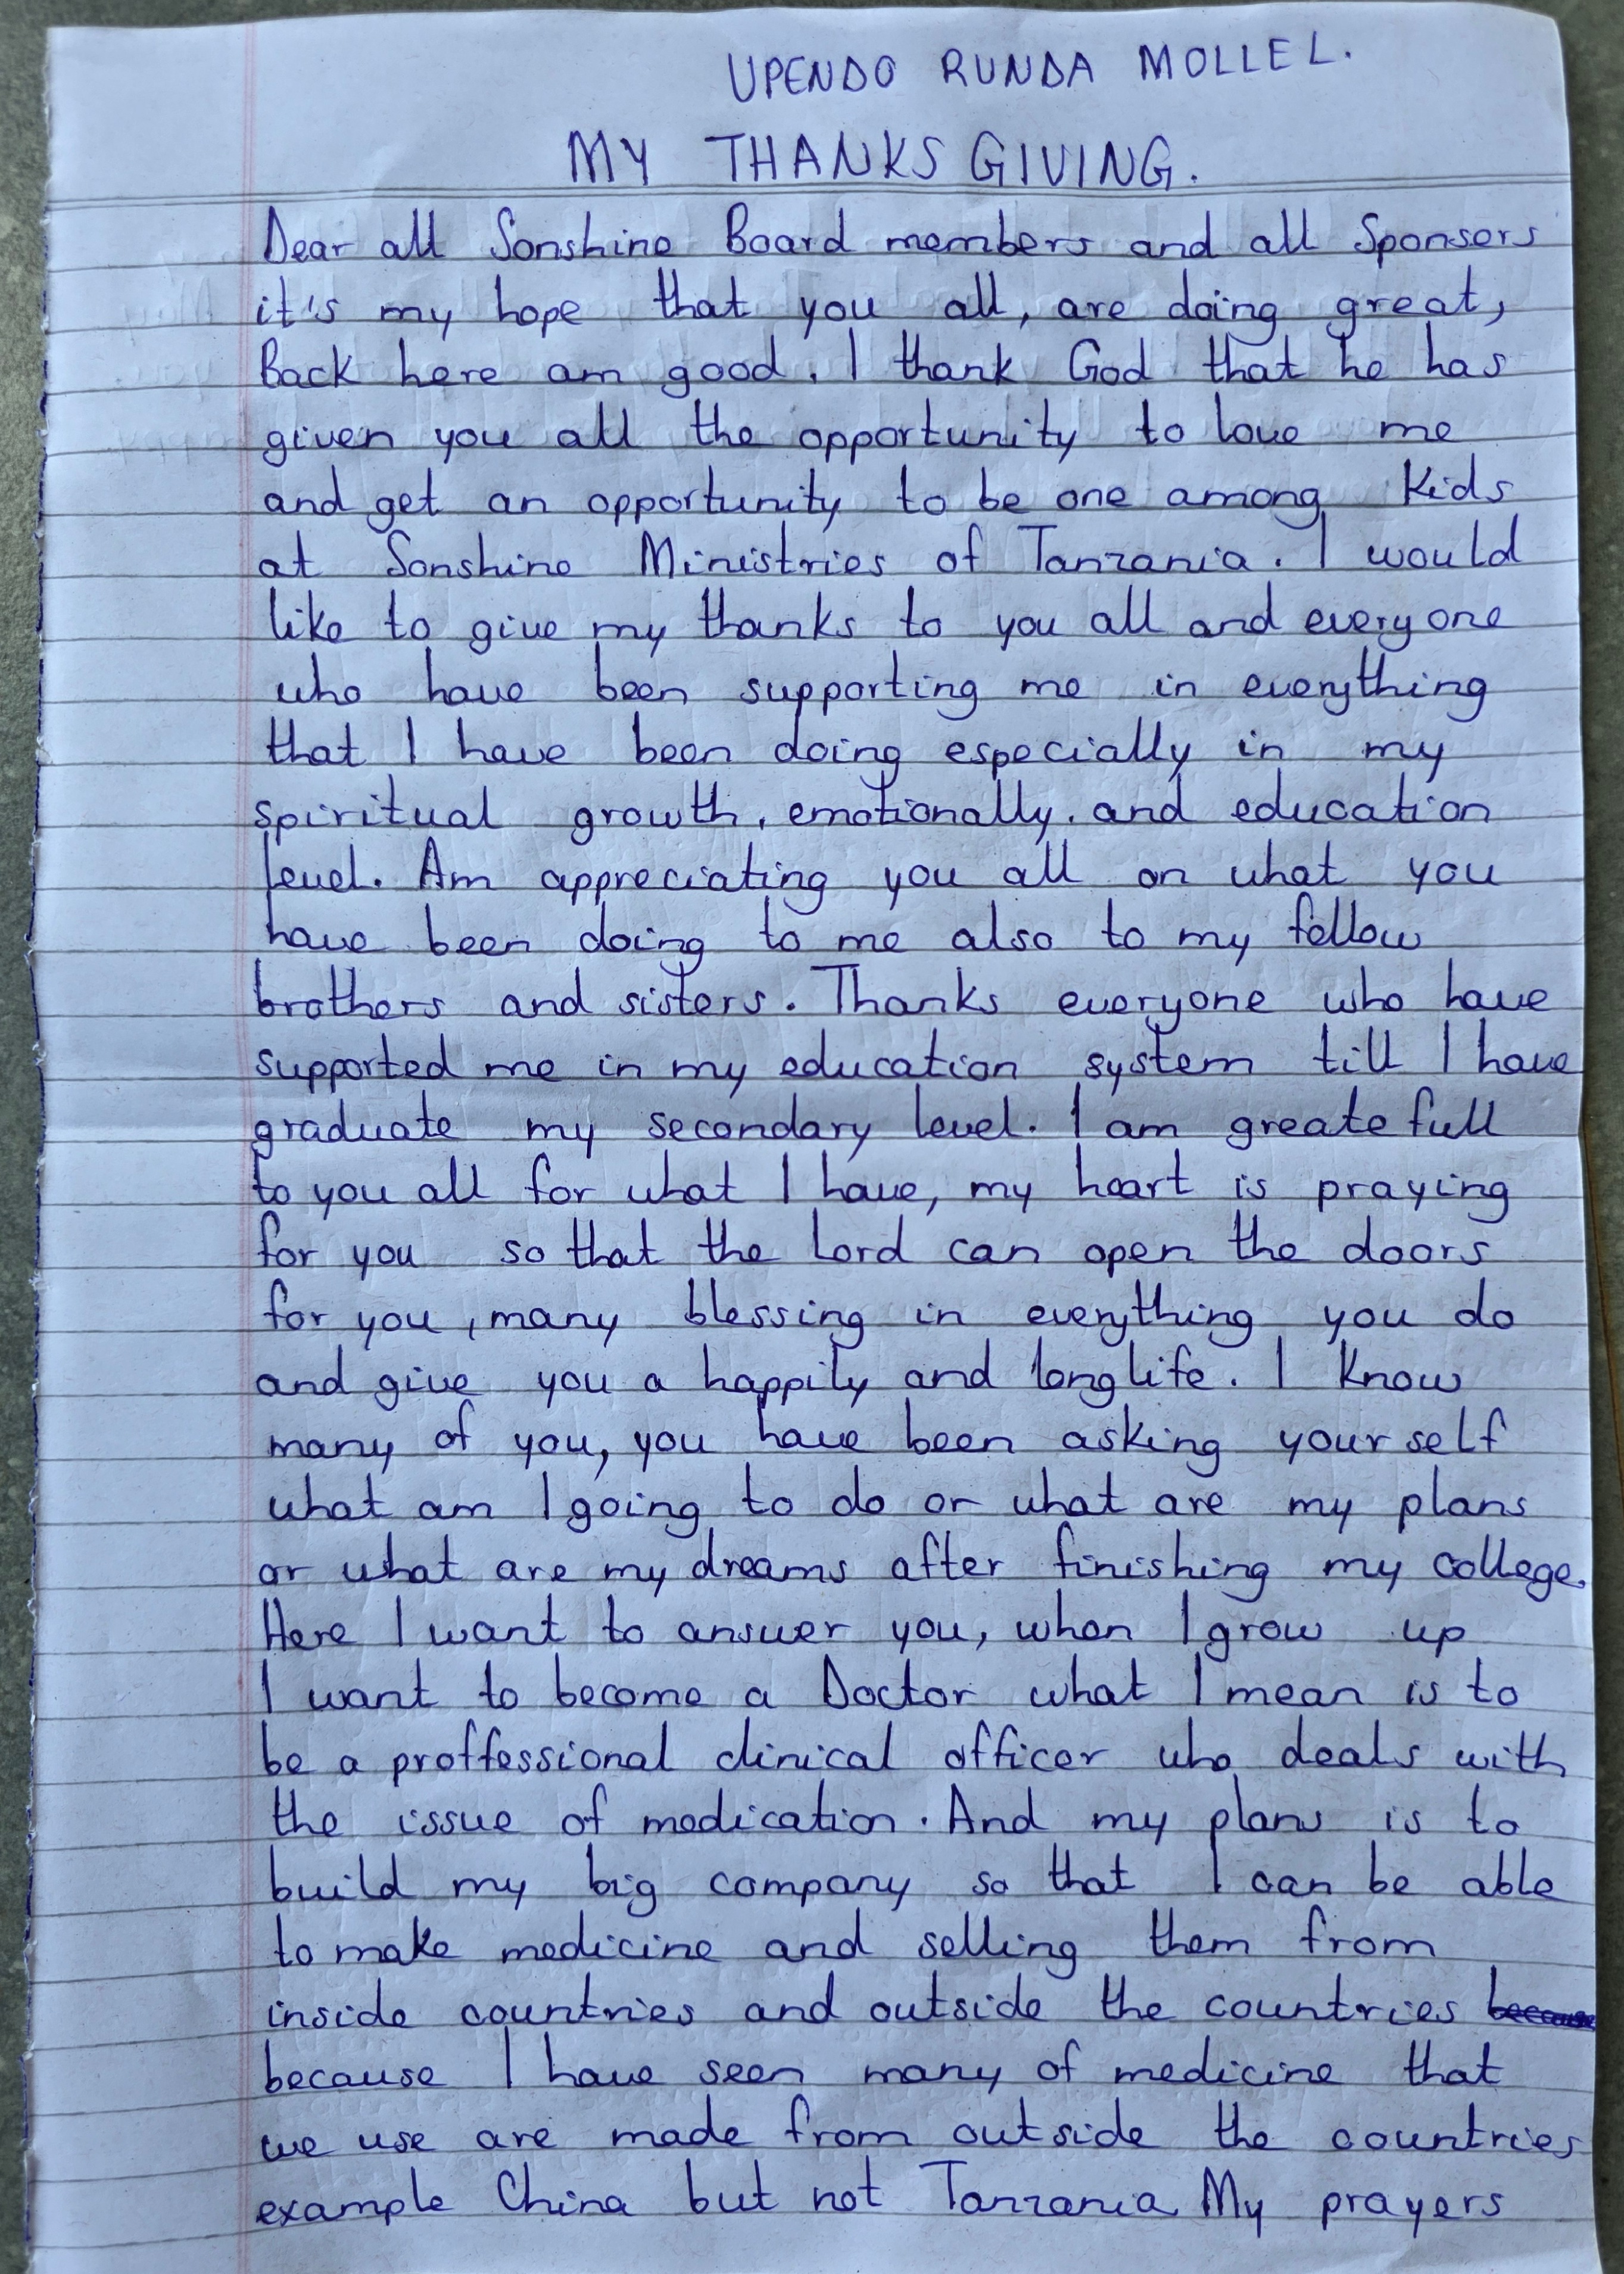 UPENDO RUNDA MOLLEL.
MY THANKS GIVING.
Dear all Sonshine Board members and all Sponsors
it's my hope that you all, are doing great,
Back here am good. I thank God that he has
given you all the opportunity to love me
and get an opportunity to be one among Kids
at Sonshine Ministries of Tanzania. I would
like to give my thanks to you all and everyone
who have been supporting me in everything
that I have been doing especially in my
spiritual growth, emotionally, and education
level. Am appreciating you all on what you
have been doing to me also to my fellow
brothers and sisters. Thanks everyone who have
supported me in my education system till I have
graduate my secondary level. I am greatefull
to you all for what I have, my heart is praying
for you so that the Lord can open the doors
for you, many blessing in everything you do
and give you a happily and long life. I know
many of you, you have been asking your self
what am I going to do or what are my plans
or what are my dreams after finishing my college.
Here I want to answer you, when I grow up
I want to become a Doctor what I mean is to
be a proffessional clinical officer who deals with
the issue of medication. And my plans is to
build my big company so that I can be able
to make medicine and selling them from
inside countries and outside the countries because
because I have seen many of medicine that
we use are made from outside the countries
example China but not Tanzania. My prayers